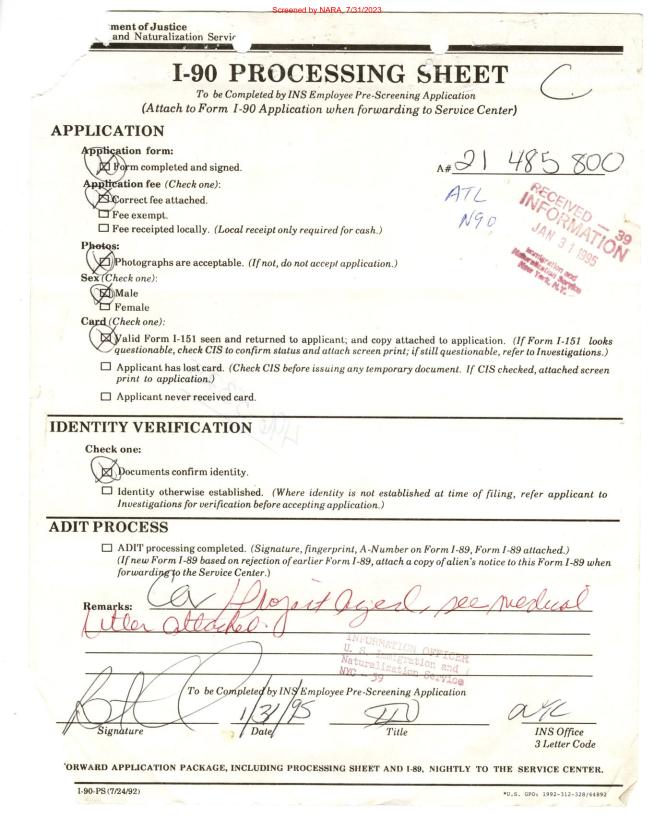 Screened by NARA, 7/31/2023
ment of Justice
and Naturalization Servic
I-90 PROCESSING SHEET
C.
To be Completed by INS Employee Pre-Screening Application
(Attach to Form I-90 Application when forwarding to Service Center)
APPLICATION
Application form:
Form completed and signed.
A# 21 485 800
Application fee (Check one):
Correct fee attached.
ATL
Fee exempt.
N90
Fee receipted locally. (Local receipt only required for cash.)
RECEIVED — 39
INFORMATION
JAN 31 1995
Immigration and
Naturalization Service
New York, N.Y.
Photos:
Photographs are acceptable. (If not, do not accept application.)
Sex (Check one):
Male
Female
Card (Check one):
Valid Form I-151 seen and returned to applicant; and copy attached to application. (If Form I-151 looks
questionable, check CIS to confirm status and attach screen print; if still questionable, refer to Investigations.)
Applicant has lost card. (Check CIS before issuing any temporary document. If CIS checked, attached screen
print to application.)
Applicant never received card.
IDENTITY VERIFICATION
Check one:
Documents confirm identity.
Identity otherwise established. (Where identity is not established at time of filing, refer applicant to
Investigations for verification before accepting application.)
ADIT PROCESS
ADIT processing completed. (Signature, fingerprint, A-Number on Form I-89, Form I-89 attached.)
(If new Form I-89 based on rejection of earlier Form I-89, attach a copy of alien's notice to this Form I-89 when
forwarding to the Service Center.)
Remarks: aged, see medical
letter attached.
INFORMATION OFFICER
U. S. Immigration and
Naturalization Service
NYC - 39
To be Completed by INS Employee Pre-Screening Application
1/31/95
Signature Date Title INS Office
3 Letter Code
ORWARD APPLICATION PACKAGE, INCLUDING PROCESSING SHEET AND I-89, NIGHTLY TO THE SERVICE CENTER.
I-90-PS (7/24/92)
*U.S. GPO: 1992-312-328/64892